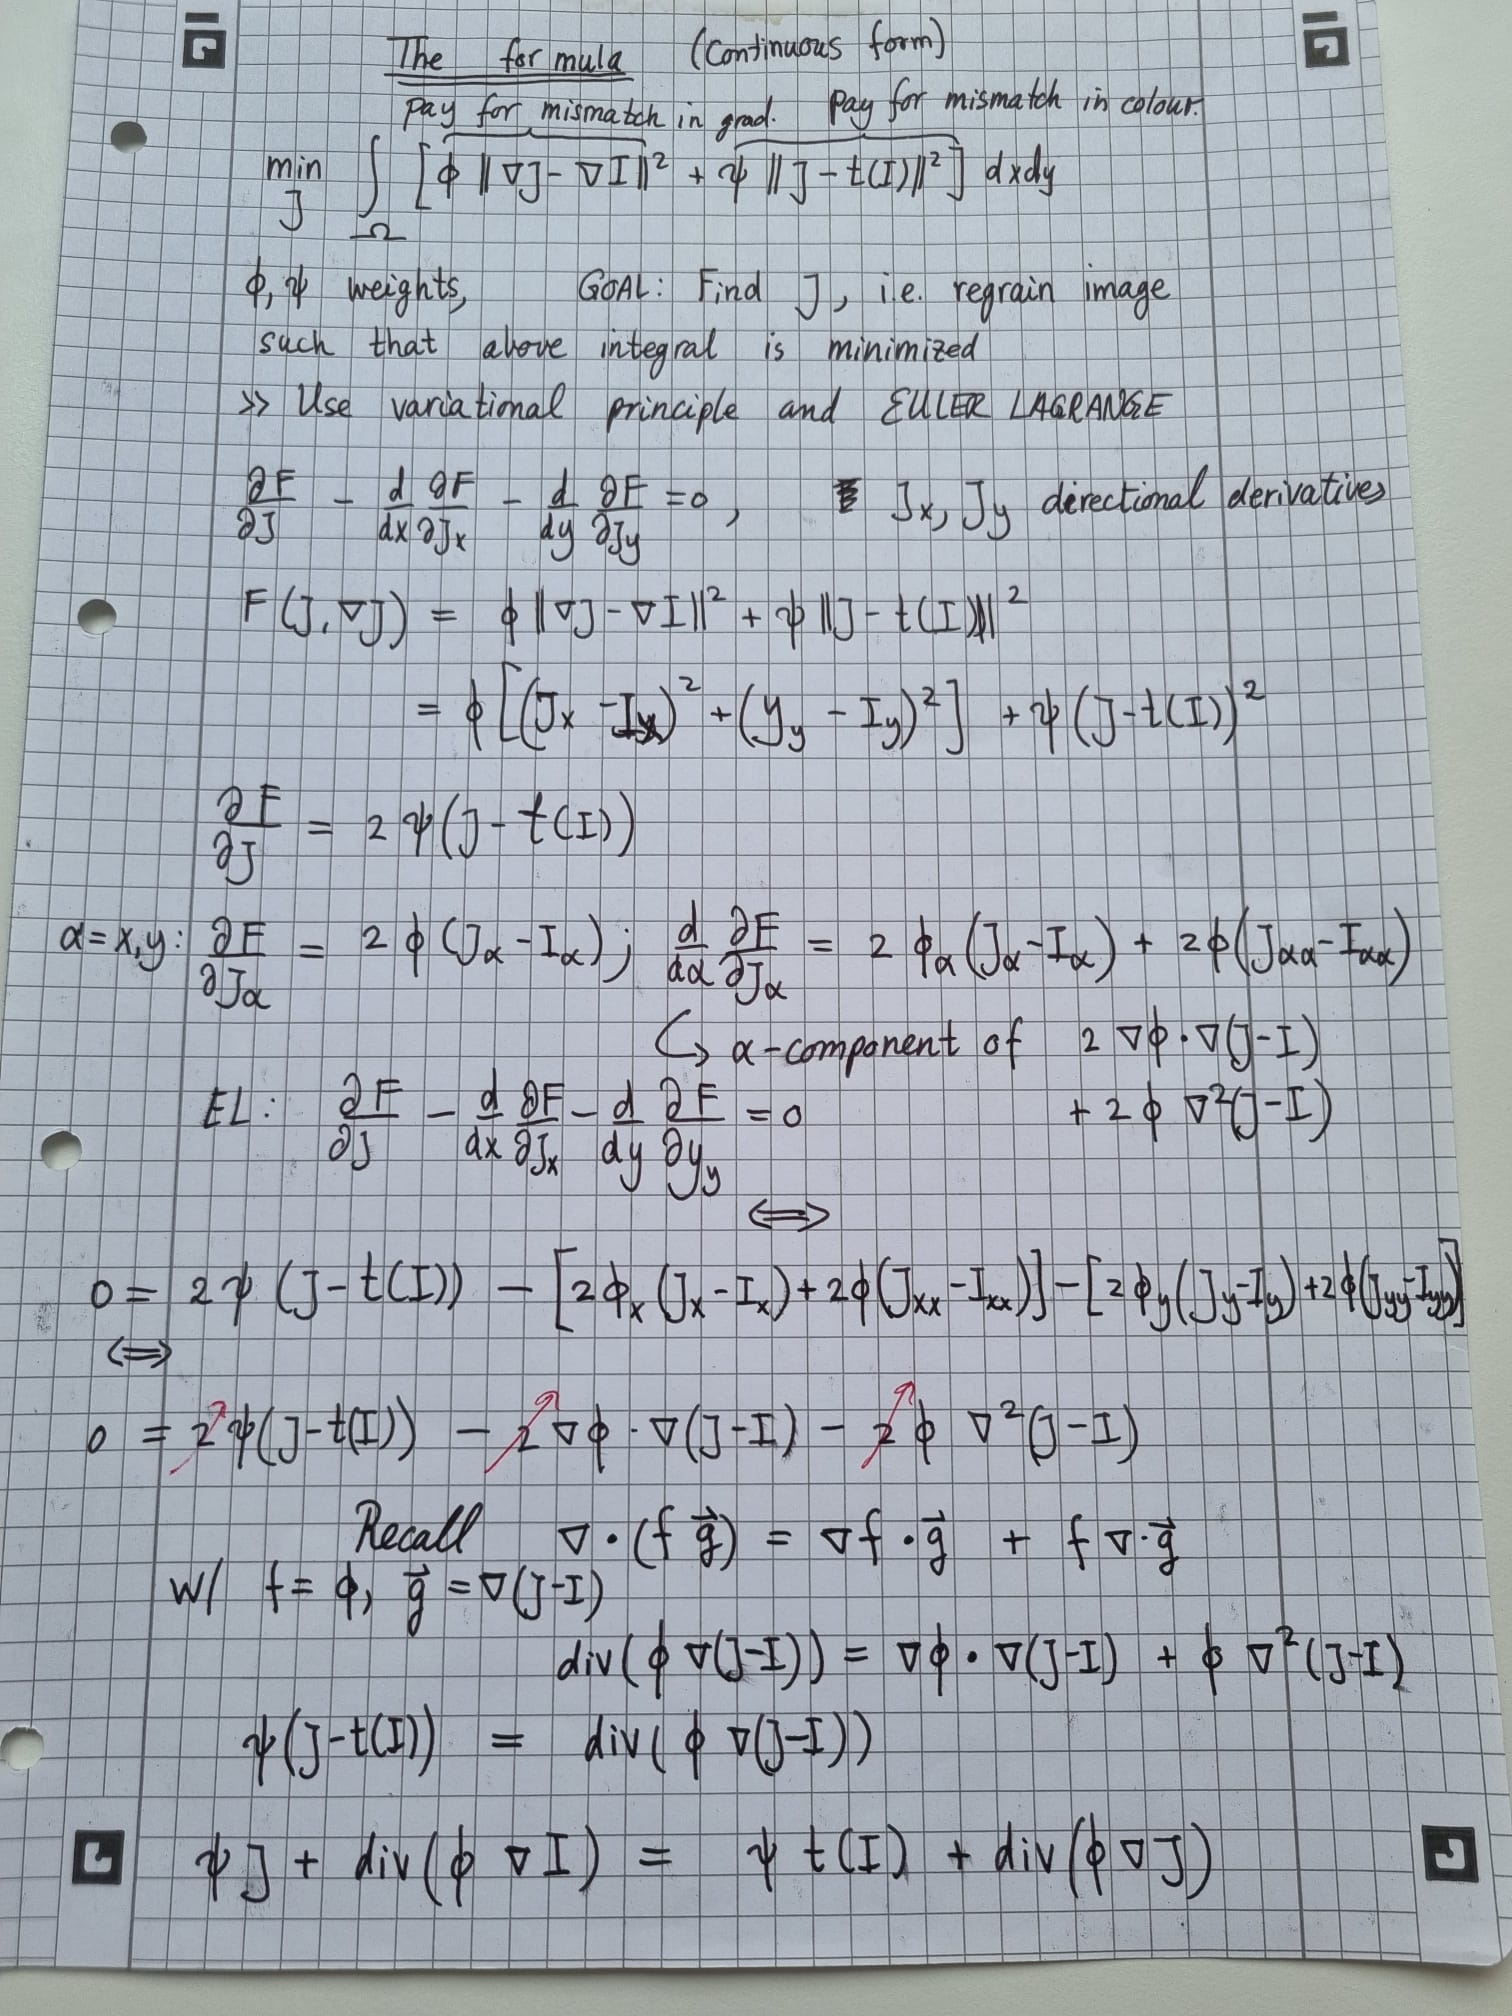 The formula (Continuous form)
pay for mismatch in grad. pay for mismatch in colour.
min_J ∫_Ω [ϕ ‖∇J − ∇I‖² + ψ ‖J − t(I)‖²] dxdy
ϕ, ψ weights, GOAL: Find J, i.e. regrain image
such that above integral is minimized
>> Use variational principle and EULER LAGRANGE
∂F/∂J − d/dx ∂F/∂J_x − d/dy ∂F/∂J_y = 0, J_x, J_y directional derivatives
F(J, ∇J) = ϕ ‖∇J − ∇I‖² + ψ ‖J − t(I)‖²
= ϕ [(J_x − I_x)² + (y_y − I_y)²] + ψ (J − t(I))²
∂F/∂J = 2 ψ (J − t(I))
α = x,y: ∂F/∂J_α = 2 ϕ (J_α − I_α); d/dα ∂F/∂J_α = 2 ϕ_α (J_α − I_α) + 2ϕ (J_αα − I_αα)
↪ α-component of 2 ∇ϕ · ∇(J − I)
+ 2 ϕ ∇²(J − I)
EL: ∂F/∂J − d/dx ∂F/∂J_x − d/dy ∂F/∂y_y = 0
⟺
0 = 2 ψ (J − t(I)) − [2 ϕ_x (J_x − I_x) + 2ϕ (J_xx − I_xx)] − [2 ϕ_y (J_y − I_y) + 2ϕ (J_yy − I_yy)]
⟺
0 = 2 ψ (J − t(I)) − 2 ∇ϕ · ∇(J − I) − 2 ϕ ∇²(J − I)
Recall ∇ · (f g⃗) = ∇f · g⃗ + f ∇ · g⃗
w/ f = ϕ, g⃗ = ∇(J − I)
div(ϕ ∇(J − I)) = ∇ϕ · ∇(J − I) + ϕ ∇²(J − I)
ψ (J − t(I)) = div(ϕ ∇(J − I))
ψ J + div(ϕ ∇I) = ψ t(I) + div(ϕ ∇J)